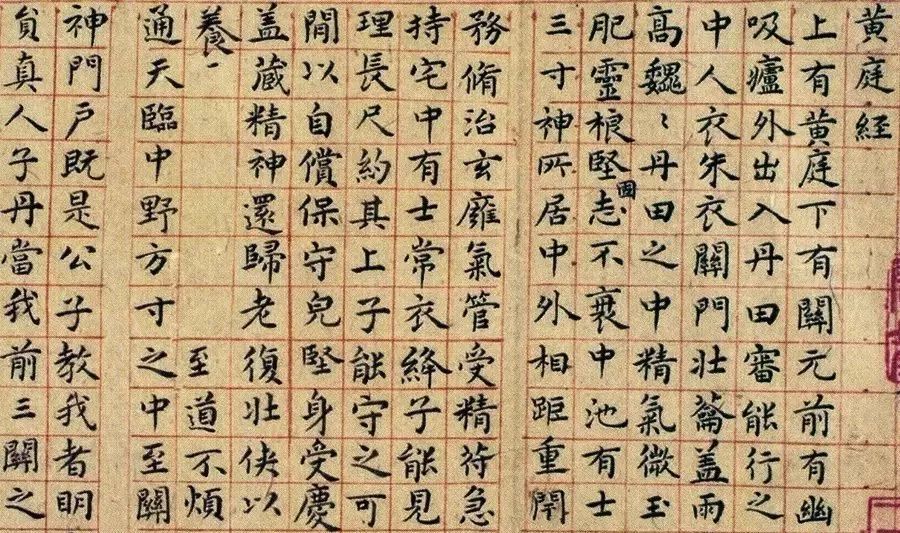 黄庭経
上有黄庭下有關元前有幽
吸廬外出入丹田審能行之
中人衣朱衣關門壮蘥盖兩
高巍〻丹田之中精氣微玉
肥靈根堅固志不衰中池有士
三寸神所居中外相距重閇
務脩治玄癰氣管受精苻急
持宅中有士常衣絳子能見
理長尺約其上子能守之可
閒以自償保守皃堅身受慶
盖藏精神還歸老復壮俠以
養一 至道不煩
通天臨中野方寸之中至關
神門戶既是公子教我者明
員真人子丹當我前三關之